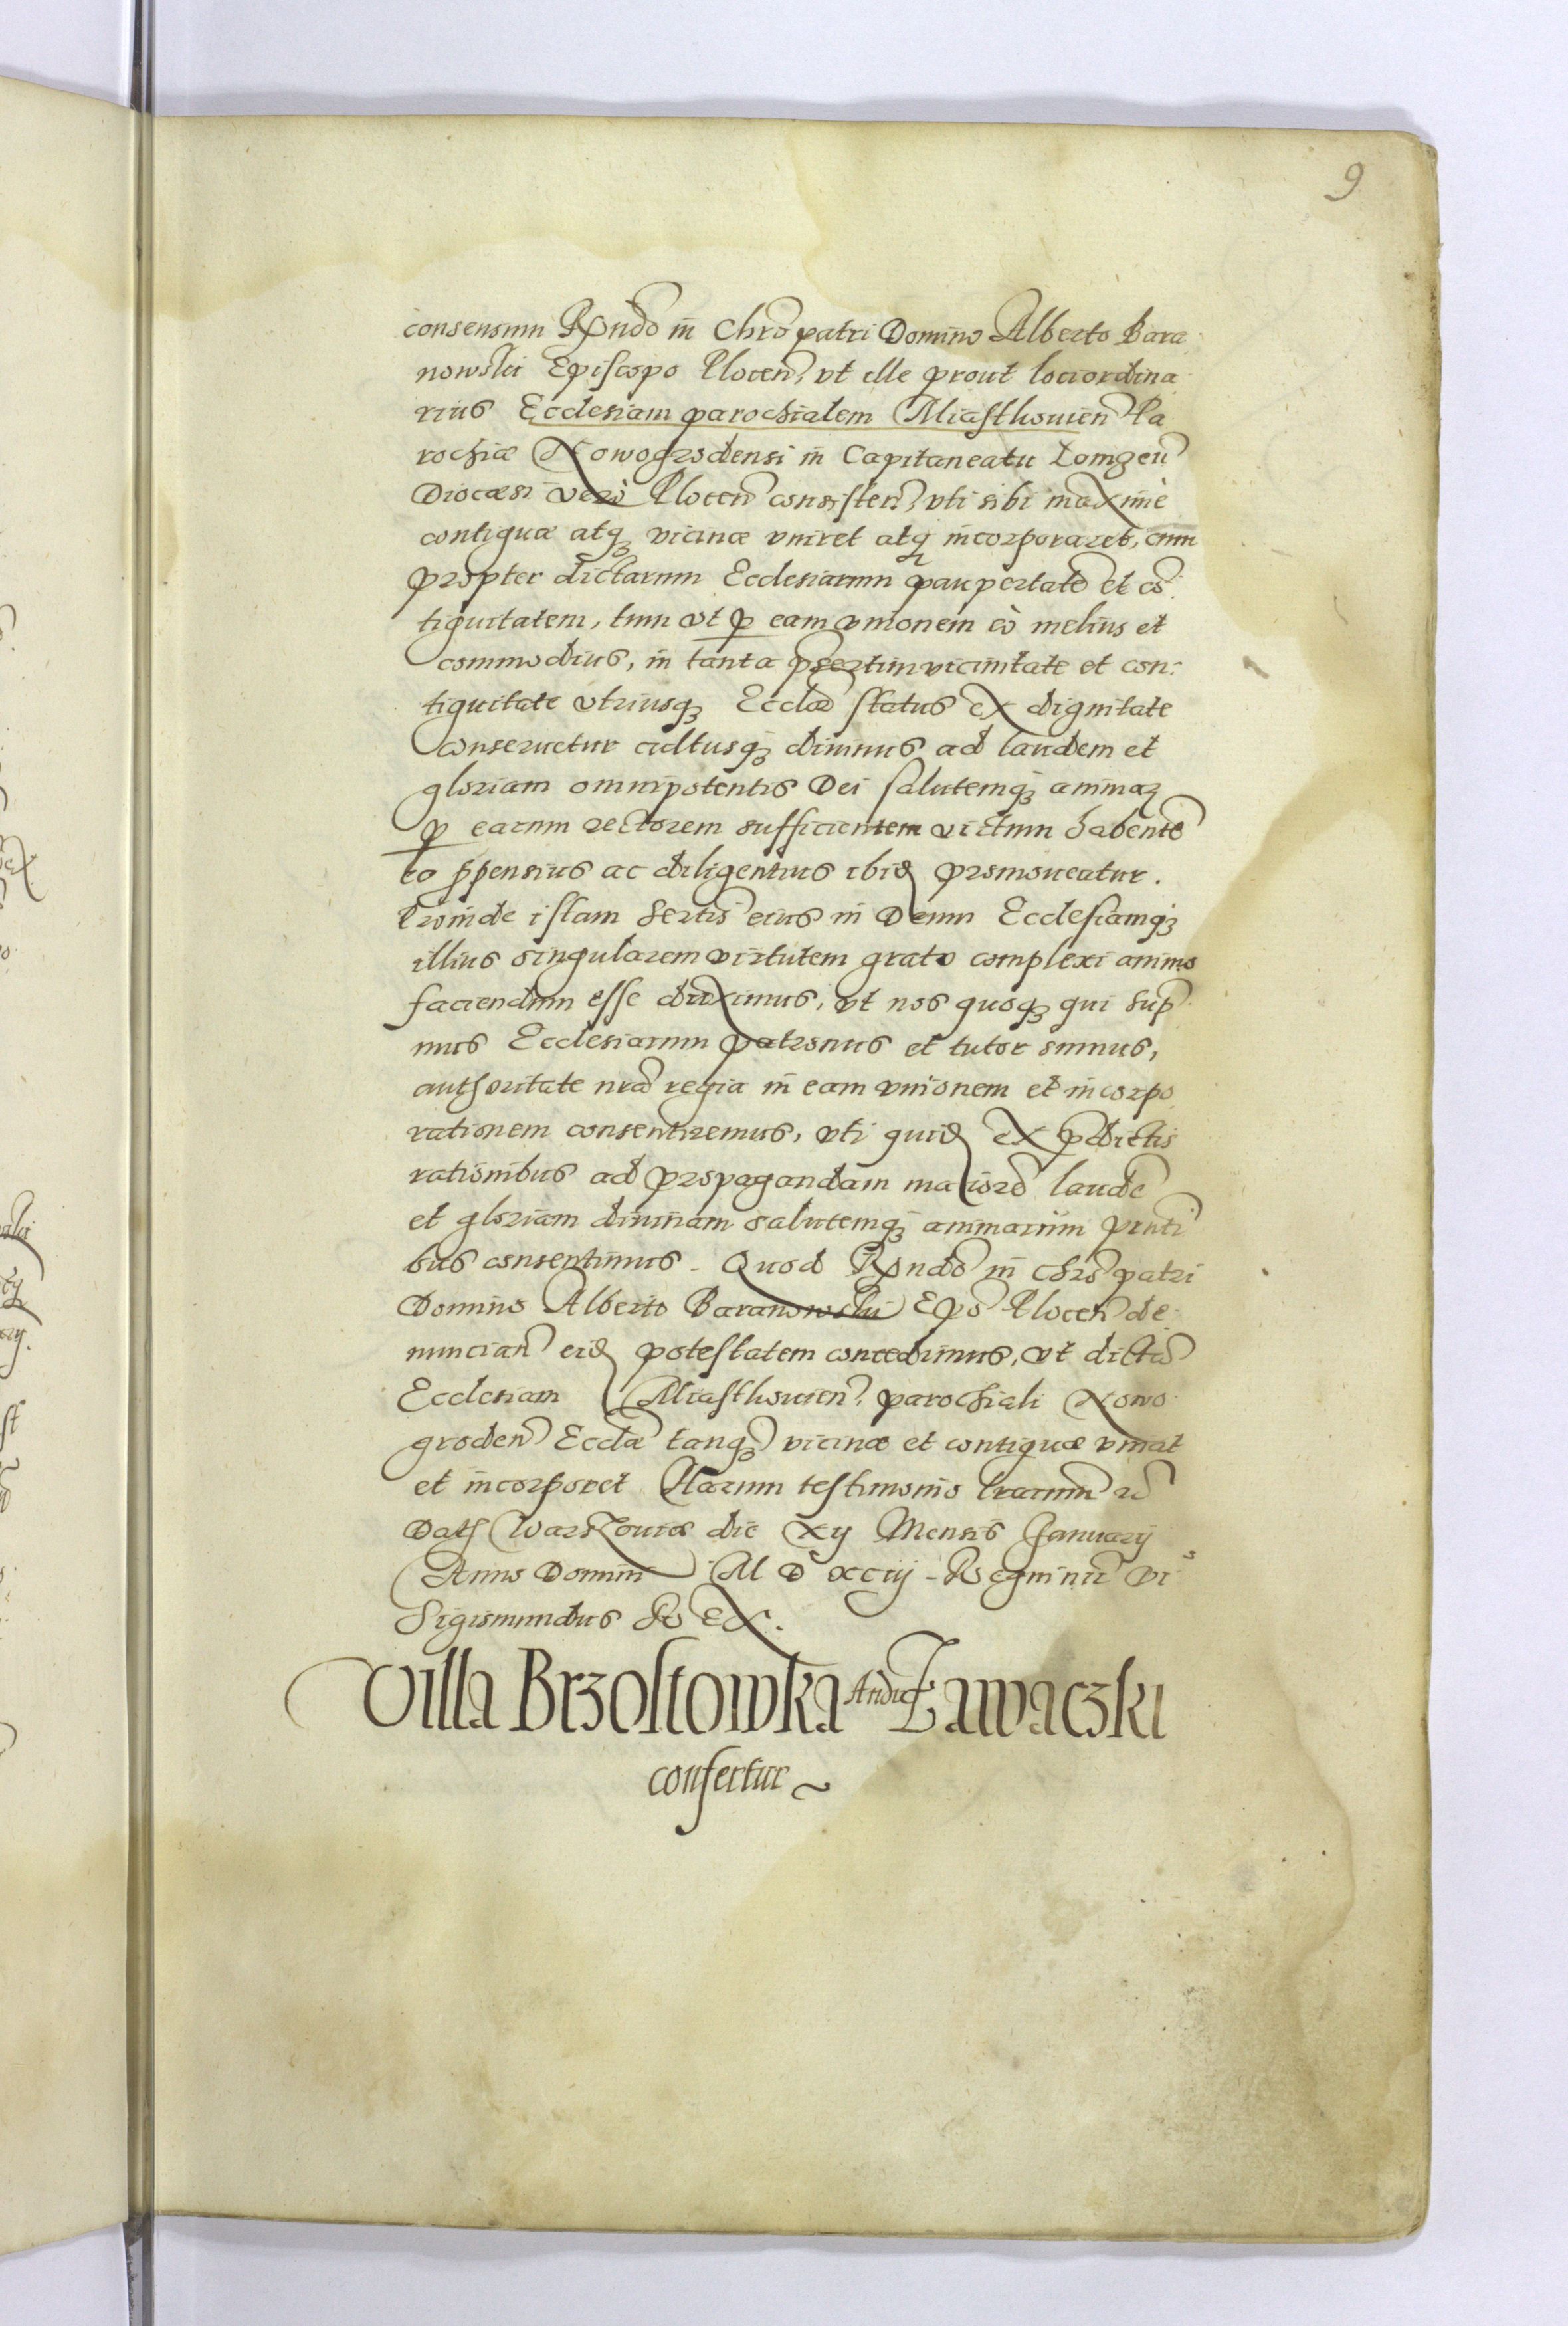 9
consensum Rṽndo in Chrō patri Domino Alberto Bara
nowski Episcopo Plocen̄, vt ille prout loci ordina
rius Ecclesiam parochialem Miasthouien̄ Pa
rochiæ Nowogrodensi in Capitaneatu Lomzen̄
Diocæsi verò Plocen̄ consisten̄, vti sibi maximè
contiguæ atq̨ vicinæ vniret atq̨ incorporaret, cum
propter dictarum Ecclesiarum paupertatē et cō
tiguitatem, tum vt ꝑ eam vnionem eò melius et
commodius, in tanta p̄sertim vicinitate et con:
tiguitate vtriusq̨ Eccl̄æ status ex dignitate
conseruetur cultusq̨ diuinus ad laudem et
gloriam omnipotentis Dei salutemq̨ animaꝝ
ꝑ earum rectorem sufficientem victum habentē
eo ꝓpensius ac diligentius ibid promoueatur.
Proinde istam Sertis eius in Deum Ecclesiamq̨
illius singularem virtutem grato complexi animo
faciendum esse duximus, vt nos quoq̨ qui sup̄
mus Ecclesiarum patronus et tutor sumus,
authoritate nr̄a regia in eam vnionem et incorpo
rationem consentiremus, vti quid ex p̄dictis
rationibus ad propagandam maiorē laudē
et gloriam diuinam salutemq̨ animarum p̄nti
bus consentimus. Quod Rṽndo in Chrō patri
Domino Alberto Baranowski Ep̄o Plocen̄ de
nuncian̄ eid potestatem concedimus, vt dictā
Ecclesiam Miasthouien̄. parochiali Nowo
groden̄ Eccl̄æ tanq̨ vicinæ et contiguæ vniat
et incorporet Harum testimonio l̄rarum rē
Dat Warszouiæ die XV Mensis Januarij
Anno Domini M D XCIIJ Regni nr̄i VI°
Sigismundus Rex.
Villa Brzostowka Andreæ Zawaczki
confertur